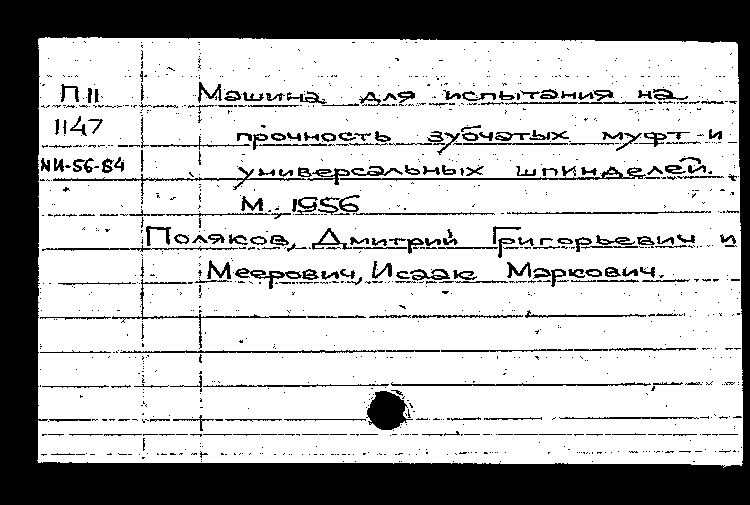 П II Машина для испытания на
1147 прочность зубчатых муфт и
NИ-56-84 универсальных шпинделей.
М., 1956
Поляков, Дмитрий Григорьевич и
Меерович, Исаак Маркович.